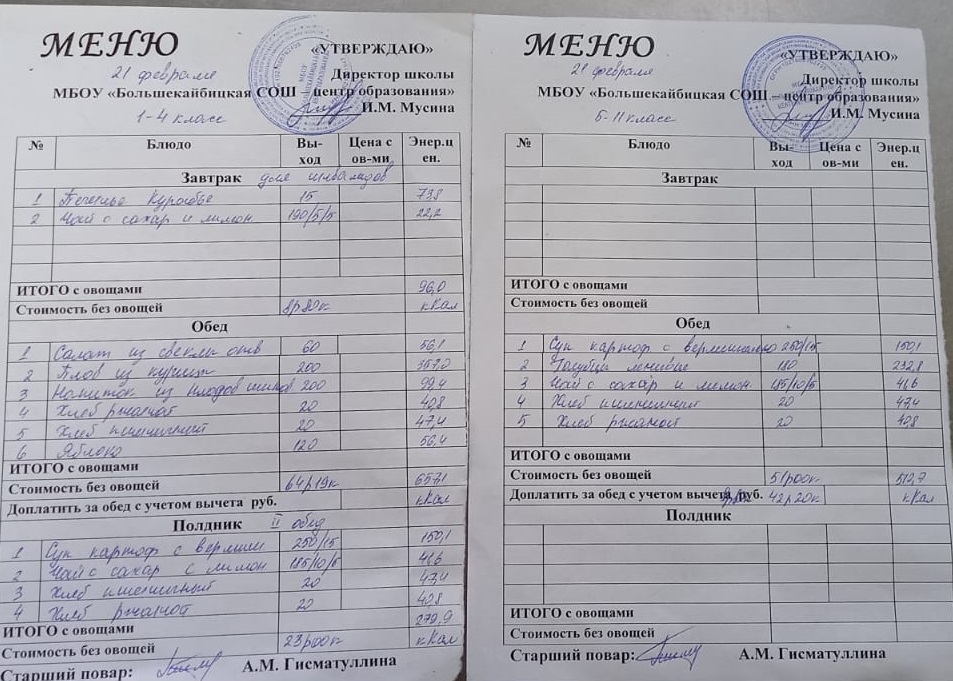 МЕНЮ
«УТВЕРЖДАЮ»
21 февраля
Директор школы
МБОУ «Большекайбицкая СОШ – центр образования»
И.М. Мусина
1-4 класс
№ Блюдо Вы-ход Цена с ов-ми Энер.ц ен.
Завтрак для инвалидов
1 Печенье Курабье 15 73,8
2 Чай с сахар и лимон 190/5/5 22,2
ИТОГО с овощами 96,0
Стоимость без овощей 8р80к кКал
Обед
1 Салат из свеклы отв 60 56,1
2 Плов из курицы 200 357,0
3 Напиток из плодов шипов 200 99,4
4 Хлеб ржаной 20 40,8
5 Хлеб пшеничный 20 47,4
6 Яблоко 120 56,4
ИТОГО с овощами
Стоимость без овощей 64р19к 657,1
Доплатить за обед с учетом вычета руб. кКал
Полдник II обед
1 Суп картоф с вермиш 250/15 150,1
2 Чай с сахар с лимон 185/10/5 41,6
3 Хлеб пшеничный 20 47,4
4 Хлеб ржаной 20 40,8
ИТОГО с овощами 279,9
Стоимость без овощей 23р00к кКал
Старший повар: А.М. Гисматуллина
МЕНЮ
«УТВЕРЖДАЮ»
21 февраля
Директор школы
МБОУ «Большекайбицкая СОШ – центр образования»
И.М. Мусина
5-11 класс
№ Блюдо Вы-ход Цена с ов-ми Энер.ц ен.
Завтрак
ИТОГО с овощами
Стоимость без овощей
Обед
1 Суп картоф с вермишелью 250/15 150,1
2 Голубцы ленивые 180 232,8
3 Чай с сахар и лимон 185/10/5 41,6
4 Хлеб пшеничный 20 47,4
5 Хлеб ржаной 20 40,8
ИТОГО с овощами
Стоимость без овощей 51р00к 512,7
Доплатить за обед с учетом вычета руб. 42р20к кКал
Полдник
ИТОГО с овощами
Стоимость без овощей
Старший повар: А.М. Гисматуллина